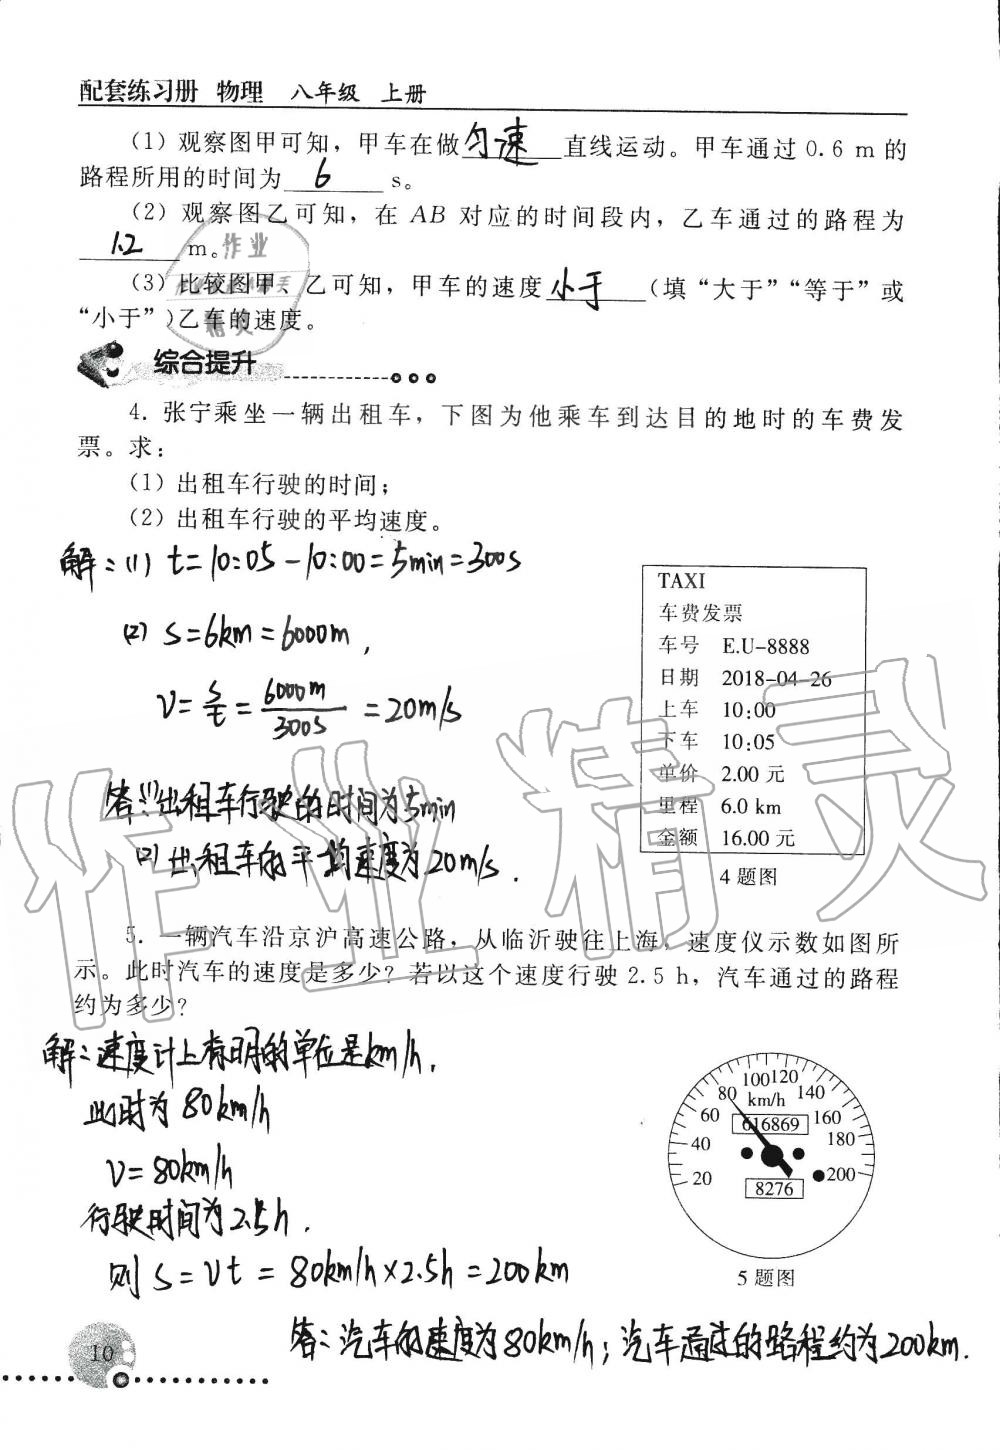 配套练习册 物理 八年级 上册
(1) 观察图甲可知，甲车在做匀速直线运动。甲车通过 0.6 m 的
路程所用的时间为 6 s。
(2) 观察图乙可知，在 AB 对应的时间段内，乙车通过的路程为
1.2 m。
(3) 比较图甲、乙可知，甲车的速度小于（填“大于”“等于”或
“小于”）乙车的速度。
综合提升
4. 张宁乘坐一辆出租车，下图为他乘车到达目的地时的车费发
票。求：
(1) 出租车行驶的时间；
(2) 出租车行驶的平均速度。
解：(1) t=10:05-10:00=5min=300s
(2) s=6km=6000m,
v=s/t=6000m/300s=20m/s
答：(1)出租车行驶的时间为5min
(2)出租车的平均速度为20m/s.
TAXI
车费发票
车号 E.U-8888
日期 2018-04-26
上车 10:00
下车 10:05
单价 2.00 元
里程 6.0 km
金额 16.00 元
4 题图
5. 一辆汽车沿京沪高速公路，从临沂驶往上海，速度仪示数如图所
示。此时汽车的速度是多少？若以这个速度行驶 2.5 h，汽车通过的路程
约为多少？
解：速度计上有明的单位是km/h.
此时为 80km/h
v=80km/h
行驶时间为2.5h.
则 s=vt=80km/h×2.5h=200km
20 40 60 80 100 120 140 160 180 200
km/h
616869
8276
5 题图
答：汽车的速度为80km/h；汽车通过的路程约为200km.
10
作业
精灵
作业精灵